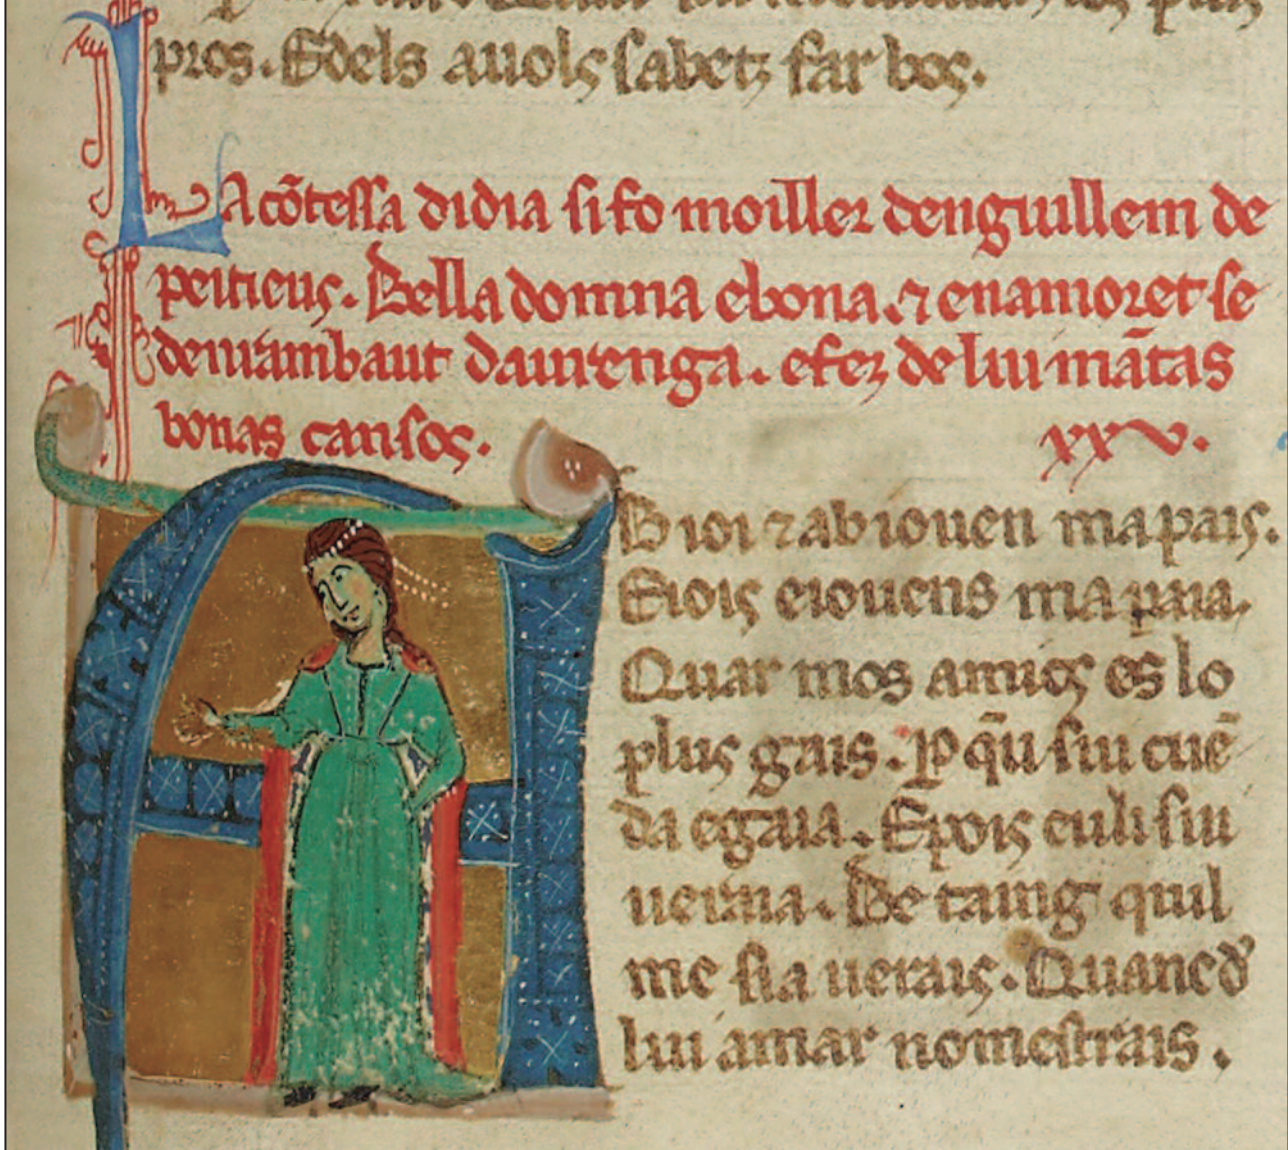 pros. Edels auols sabetz far bos.
La cõtessa didia si fo moiller denguillem de
peitieus. Bella domna ebona. ⁊ enamoret se
de rambaut daurenga. e fez de lui mãtas
bonas cansos. xxv.
AB ioi ⁊ab iouen mapais.
Eiois eiouens ma paia.
Quar mos amics es lo
plus gais. P q̃u sui cuẽ
da egaia. E pois euli sui
ueraia. Be taing quil
me sia uerais. Quanc d
lui amar nomestrais.